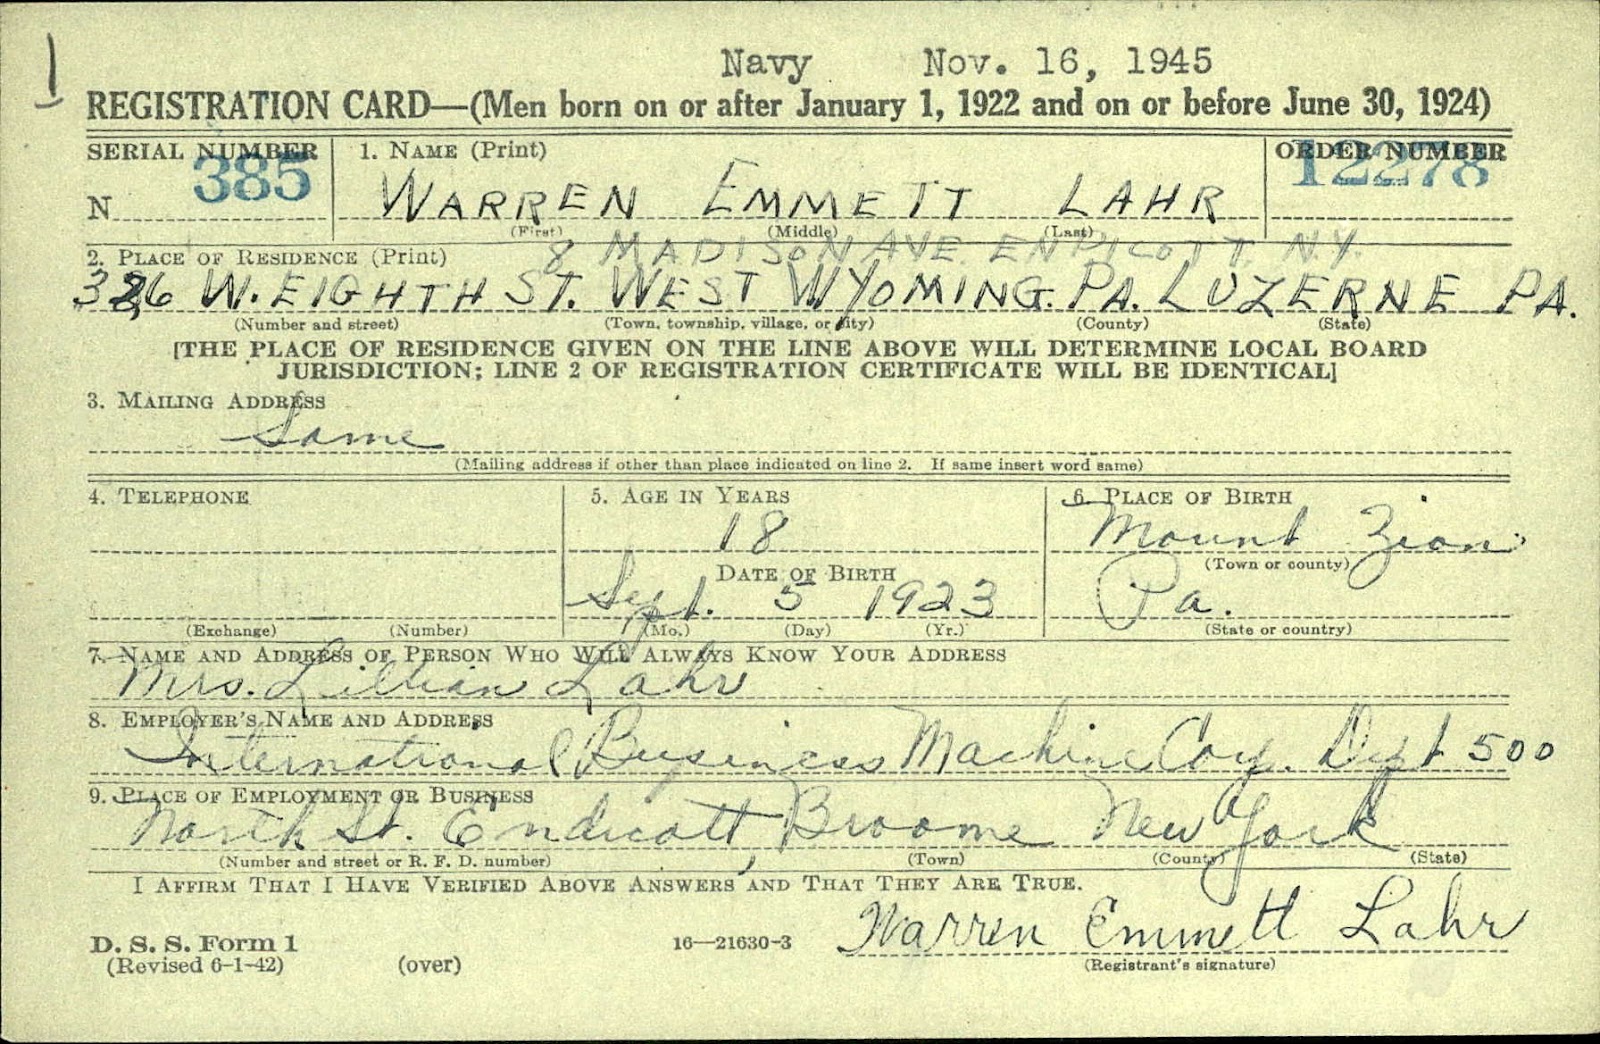 1
Navy Nov. 16, 1945
REGISTRATION CARD—(Men born on or after January 1, 1922 and on or before June 30, 1924)
SERIAL NUMBER 1. NAME (Print) ORDER NUMBER
N 385 WARREN EMMETT LAHR 12278
(First) (Middle) (Last)
8 MADISON AVE. ENDICOTT N.Y.
2. PLACE OF RESIDENCE (Print)
326 W. EIGHTH ST. WEST WYOMING. PA. LUZERNE PA.
(Number and street) (Town, township, village, or city) (County) (State)
[THE PLACE OF RESIDENCE GIVEN ON THE LINE ABOVE WILL DETERMINE LOCAL BOARD
JURISDICTION; LINE 2 OF REGISTRATION CERTIFICATE WILL BE IDENTICAL]
3. MAILING ADDRESS
Same
(Mailing address if other than place indicated on line 2. If same insert word same)
4. TELEPHONE 5. AGE IN YEARS 6. PLACE OF BIRTH
18 Mount Zion
DATE OF BIRTH (Town or county)
Sept. 5 1923 Pa.
(Exchange) (Number) (Mo.) (Day) (Yr.) (State or country)
7. NAME AND ADDRESS OF PERSON WHO WILL ALWAYS KNOW YOUR ADDRESS
Mrs. Lillian Lahr
8. EMPLOYER'S NAME AND ADDRESS
International Business Machine Coy. Dept 500
9. PLACE OF EMPLOYMENT OR BUSINESS
North St. Endicott, Broome New York
(Number and street or R. F. D. number) (Town) (County) (State)
I AFFIRM THAT I HAVE VERIFIED ABOVE ANSWERS AND THAT THEY ARE TRUE.
D. S. S. Form 1 16—21630-3 Warren Emmett Lahr
(Revised 6-1-42) (over) (Registrant's signature)